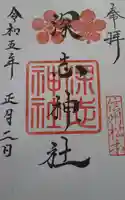 奉拝
信州松本
深志神社
深志
神社
令和五年
正月二日